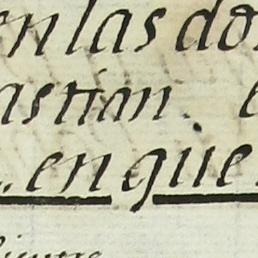 en las do
astian. e
en que